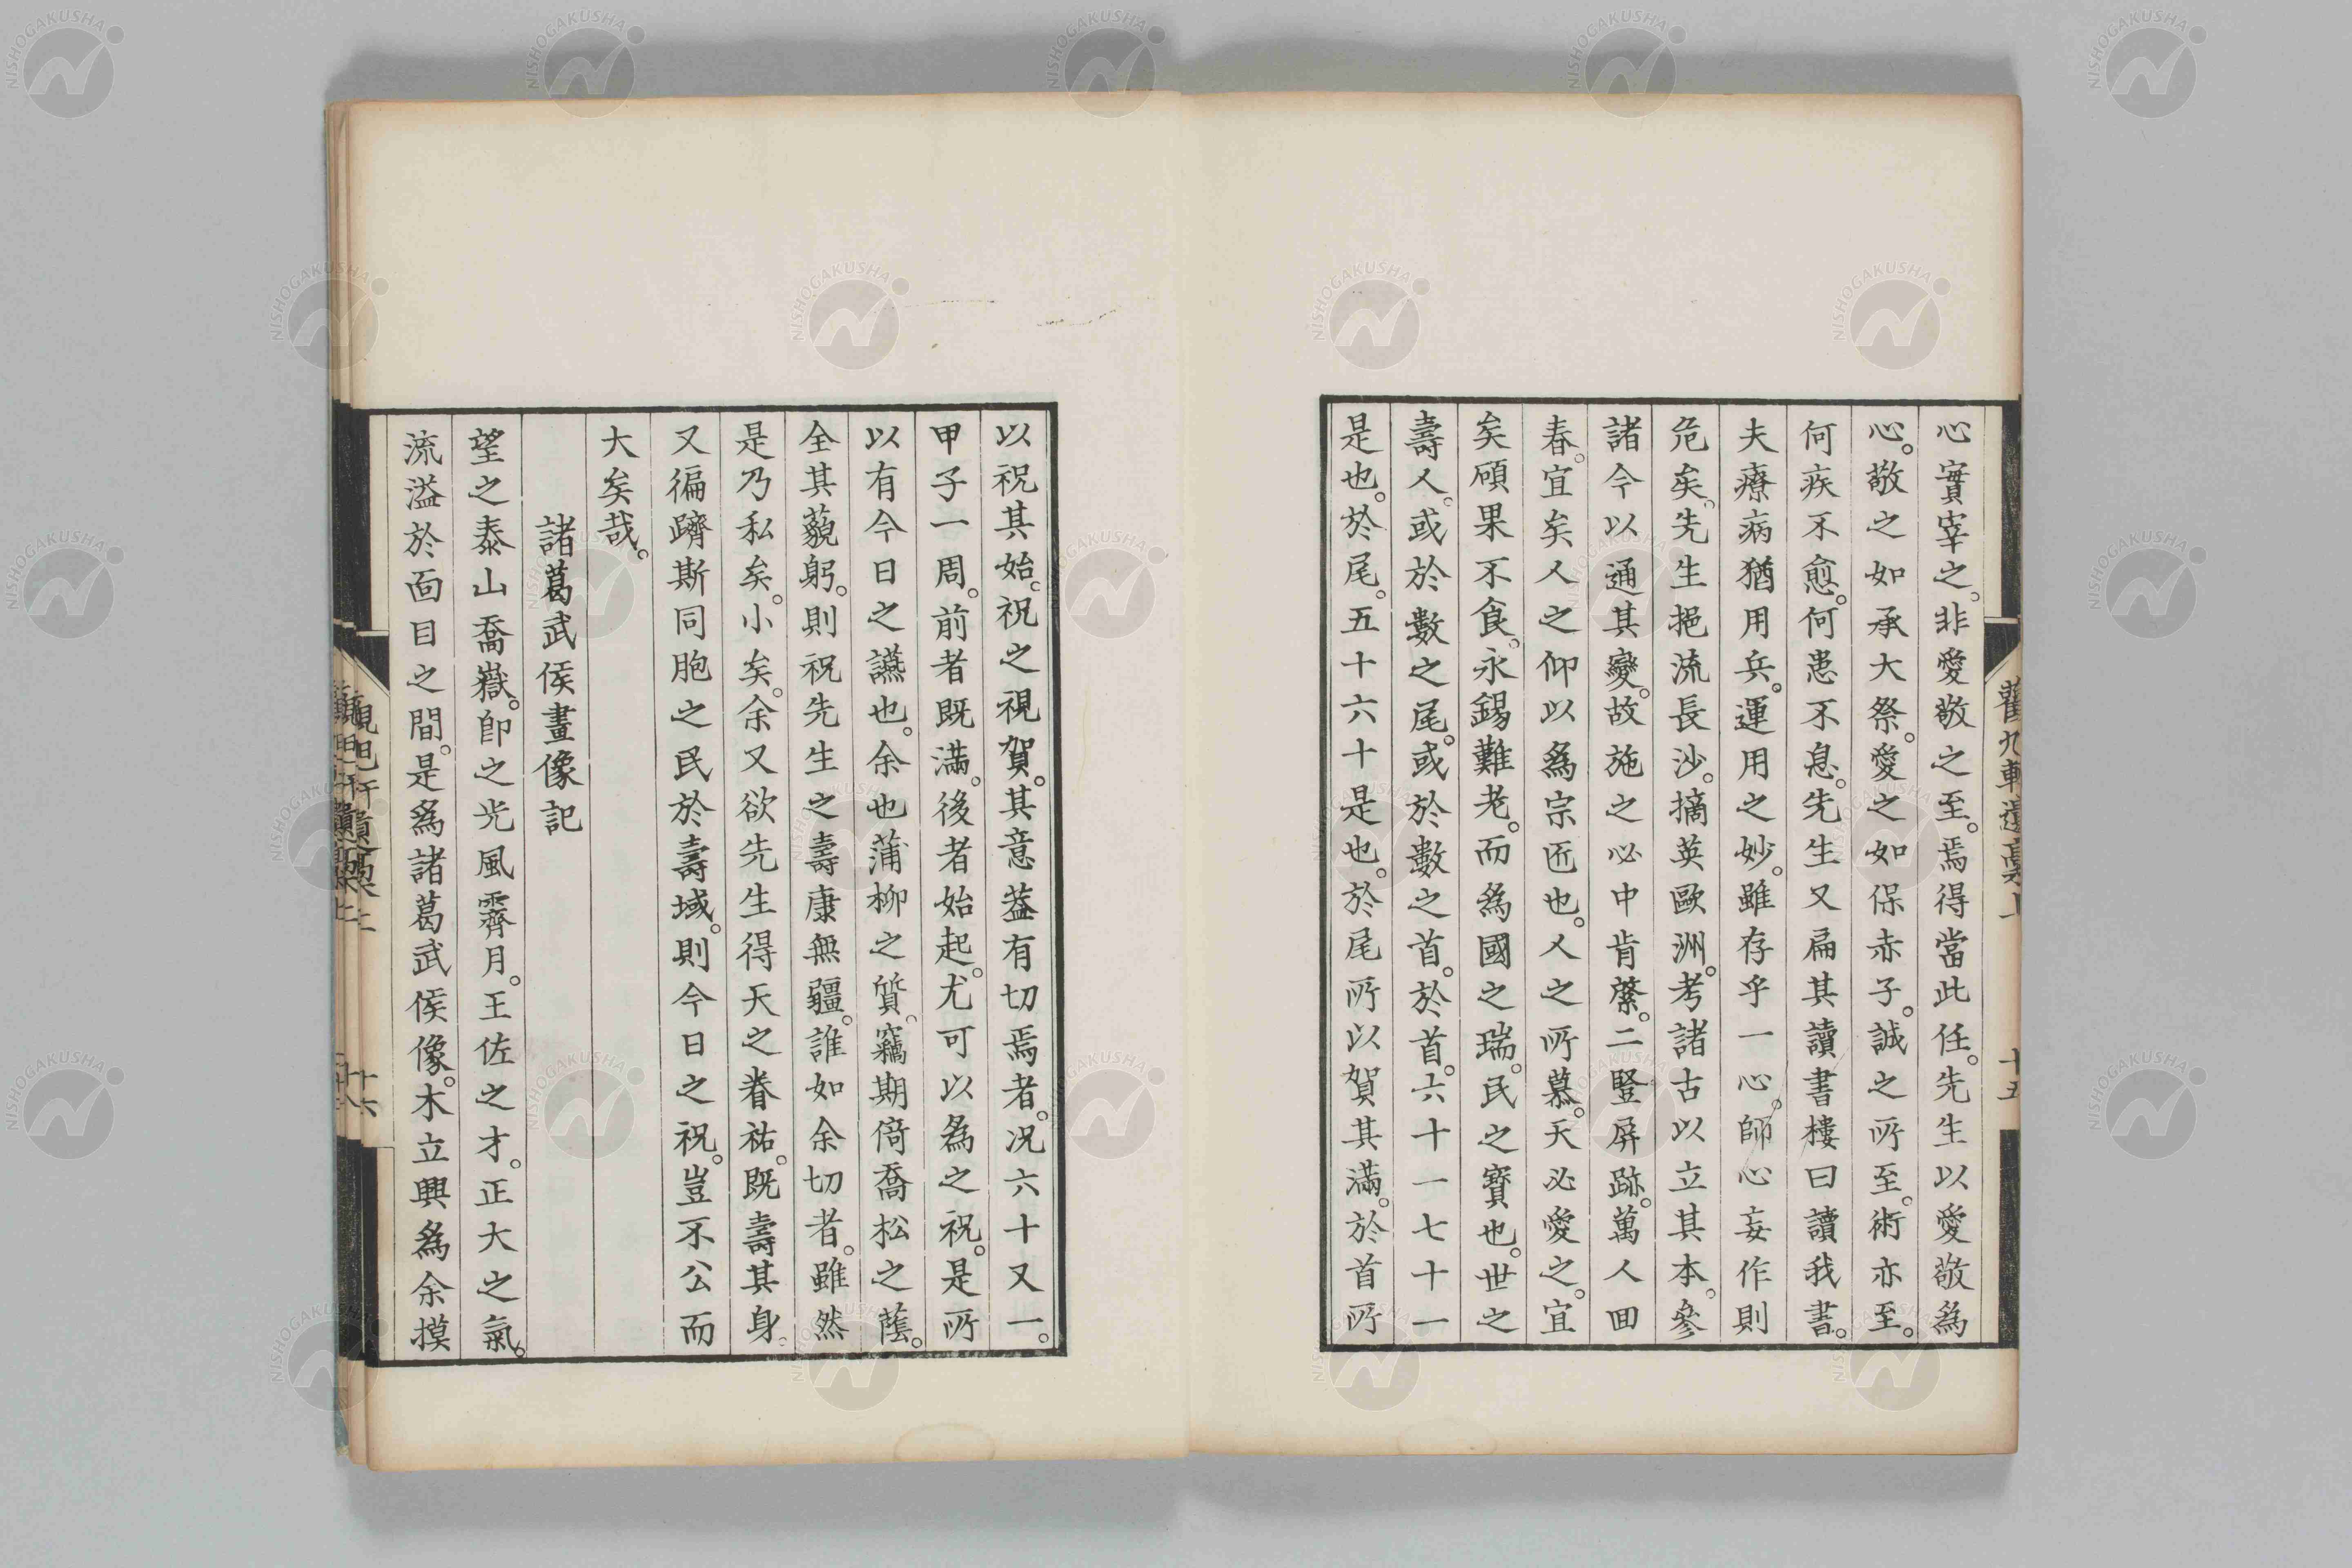 心實宰之。非愛敬之至。焉得當此任。先生以愛敬為
心。敬之如承大祭。愛之如保赤子。誠之所至。術亦至。
何疾不愈。何患不息。先生又扁其讀書樓曰讀我書。
夫療病猶用兵。運用之妙。雖存乎一心。師心妄作則
危矣。先生挹流長沙。摘英歐洲。考諸古以立其本。參
諸今以通其變。故施之必中肯綮。二豎屏跡。萬人回
春。宜矣人之仰以為宗匠也。人之所慕。天必愛之。宜
矣碩果不食。永錫難老。而為國之瑞。民之寶也。世之
壽人。或於數之尾。或於數之首。於首。六十一七十一
是也。於尾。五十六十是也。於尾所以賀其滿。於首所
以祝其始。祝之視賀。其意蓋有切焉者。况六十又一。
甲子一周。前者既滿。後者始起。尤可以為之祝。是所
以有今日之讌也。余也蒲柳之質。竊期倚喬松之蔭。
全其藐躬。則祝先生之壽康無疆。誰如余切者。雖然
是乃私矣。小矣。余又欲先生得天之眷祐。既壽其身。
又徧躋斯同胞之民於壽域。則今日之祝。豈不公而
大矣哉。
諸葛武侯畫像記
望之泰山喬嶽。卽之光風霽月。王佐之才。正大之氣。
流溢於面目之間。是為諸葛武侯像。木立興為余摸
十五
十六
NISHOGAKUSHA